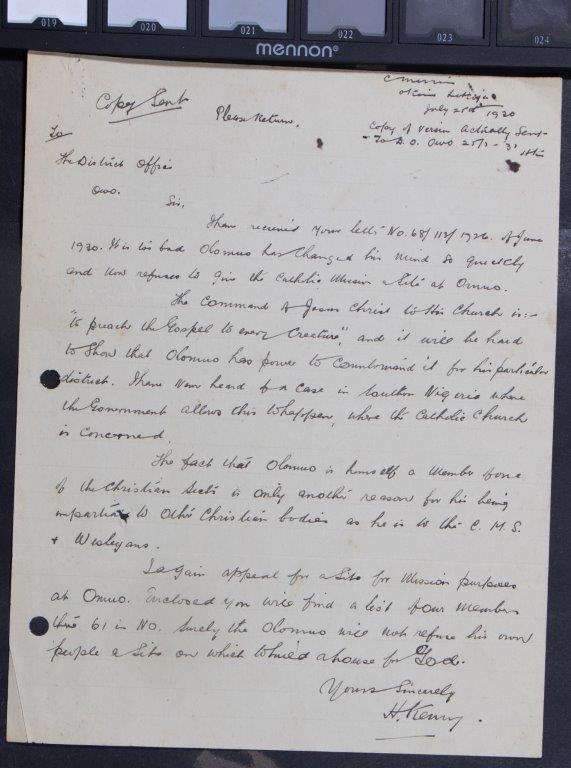 019 020 021 022 023 024
mennon®
Copy Sent
Please Return.
July 25th 1930
Copy of Version Actually Sent
To D. O. Owo 25/7 - 3
To
The District Office
Owo.
Sir,
I have received your letter No. 68/113/1926. of June
1930. It is too bad Olomuo has changed his mind so quickly
and now refuses to give the Catholic Mission a Site at Omuo.
The Command of Jesus Christ to His Church is:-
"to preach the Gospel to every Creature", and it will be hard
to show that Olomuo has power to Countermand it for his particular
district. I have never heard of a case in Southern Nigeria where
the Government allows this to happen, where the Catholic Church
is Concerned.
The fact that Olomuo is himself a Member of one
of the Christian Sects is only another reason for his being
impartial to other Christian bodies as he is to the C. M. S.
+ Wesleyans.
I again appeal for a Site for Mission purposes
at Omuo. Enclosed you will find a list of our Members
there 61 in No. Surely the Olomuo will not refuse his own
people a Site on which to build a house for God.
Yours Sincerely
H. Kenny.